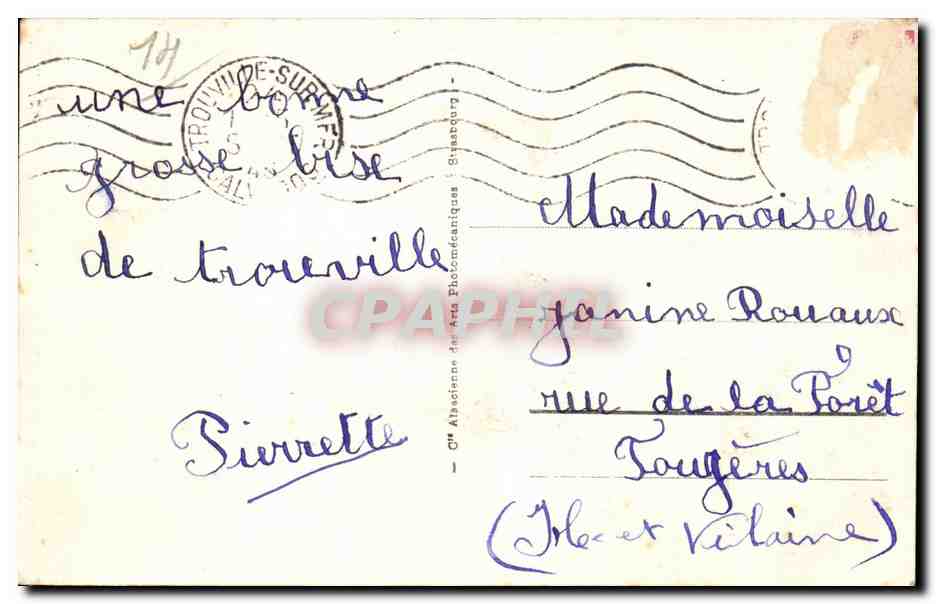 14
une bonne
grosse bise
de trouville
Pierrette
TROUVILLE-SUR-MER
Cie Alsacienne des Arts Photomécaniques - Strasbourg
CPAPHIL
Mademoiselle
Janine Rouaux
rue de la Forêt
Fougères
(Ille et Vilaine)